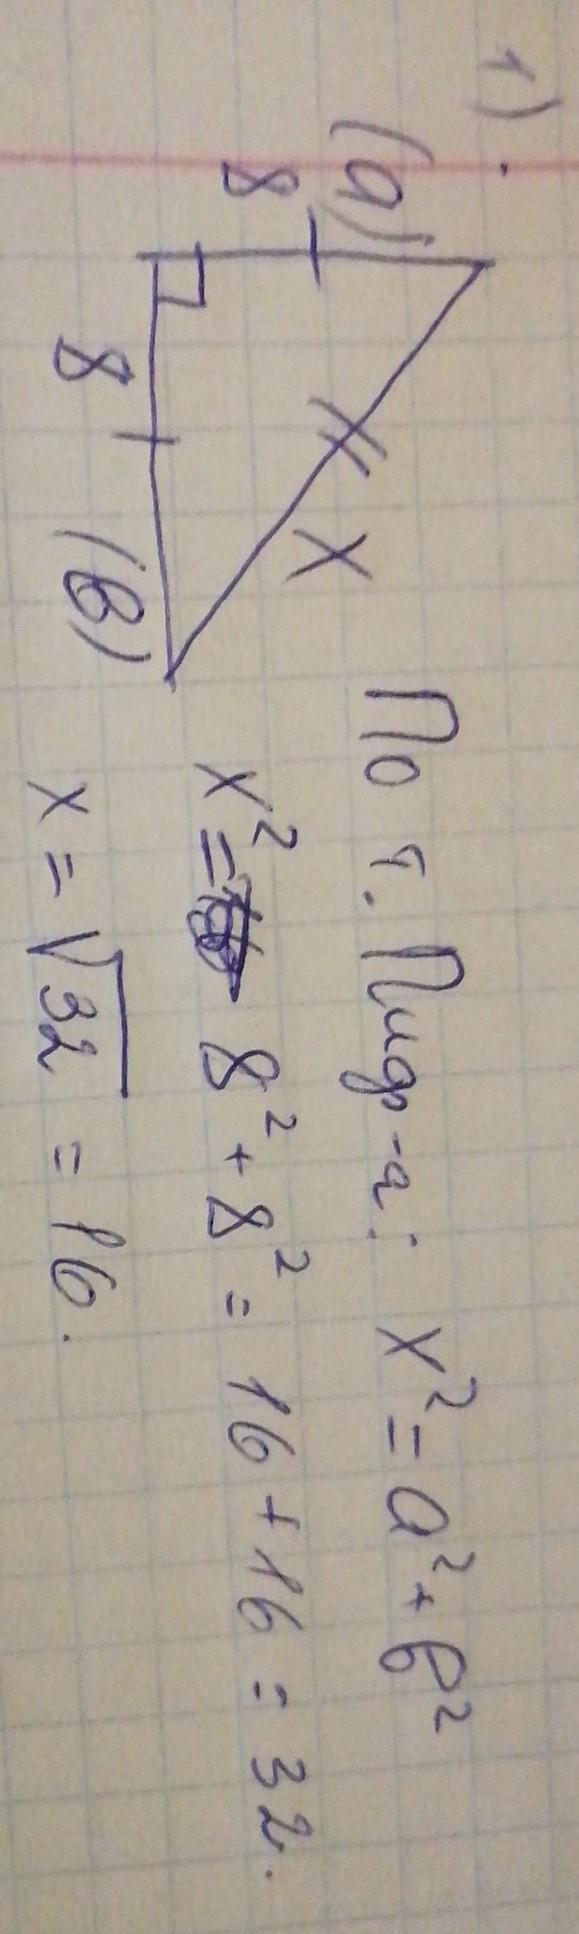 1).
(a)
8
x
8
(в)
По т. Пифр-а: x² = a² + в²
x² = 8² + 8² = 16 + 16 = 32.
x = √32 = 16.